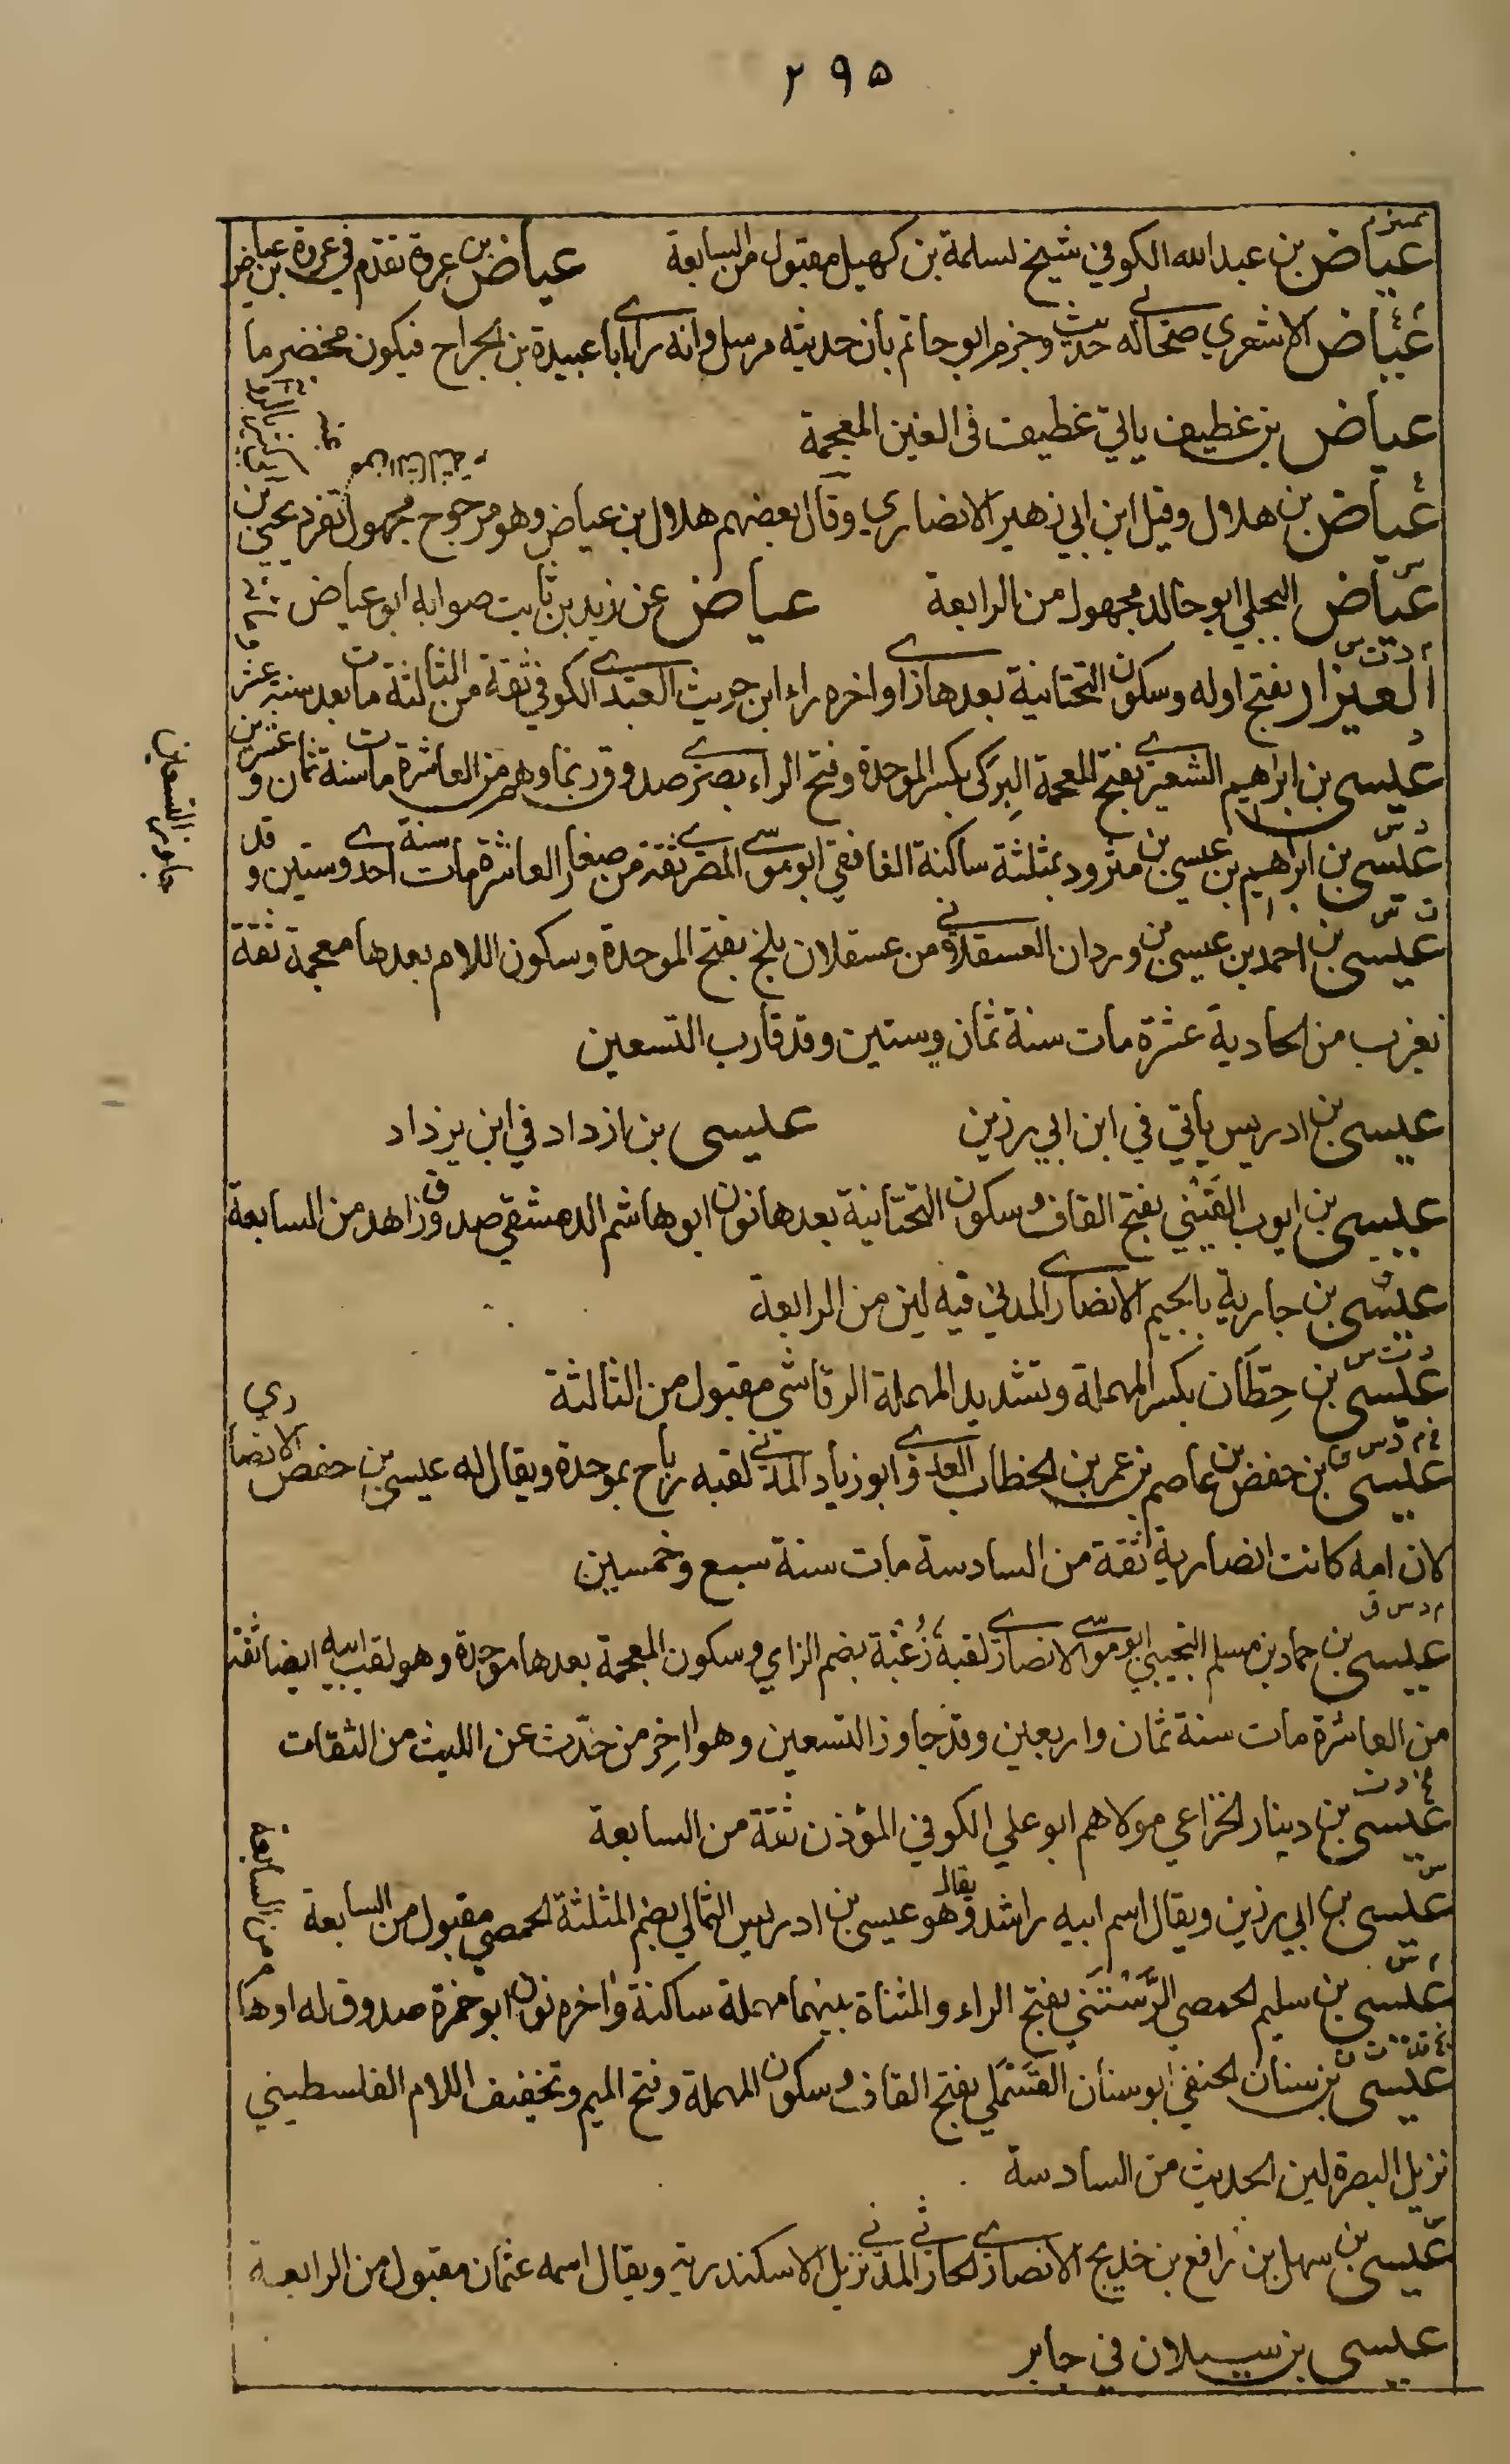 ٢٩٥
تمييز
عياض بن عبد الله الكوفي شيخ لسلمة بن كهيل مقبول من السابعة عياض بن عروة تقدم في عروة بن عياض
عياض الاشعري صحابي له حديث وجزم ابو حاتم بأن حديثه مرسل وانه راى ابا عبيدة بن الجراح فيكون مخضرما
عياض بن غطيف ياتي غطيف في الغين المعجمة
عياض بن هلال وقيل ابن ابي زهير الانصاري وقال بعضهم هلال بن عياض وهو مرجوح مجهول تفرد يحيى بن
عياض البجلي ابو خالد مجهول من الرابعة عياض عن زيد بن ثابت صوابه ابو عياض
م د ت س
العيزار بفتح اوله وسكون التحتانية بعدها زاي واخره راء ابن حريث العبدي الكوفي ثقة من الثالثة مات بعد سنة عشر
د
عيسى بن ابراهيم الشعيري بفتح المعجمة البركي بكسر الموحدة وفتح الراء بصري صدوق ربما وهم من العاشرة مات سنة ثمان وعشرين
د س
عيسى بن ابراهيم بن عيسى بن مثرود بمثلثة ساكنة الغافقي ابو موسى المصري ثقة من صغار العاشرة مات سنة احدى وستين وقد
جاوز التسعين
ت س
عيسى بن احمد بن عيسى بن وردان العسقلاني من عسقلان بلخ بفتح الموحدة وسكون اللام بعدها معجمة ثقة
يغرب من الحادية عشرة مات سنة ثمان وستين وقد قارب التسعين
عيسى بن ادريس ياتي في ابن ابي رزين عيسى بن ازداد في ابن يزداد
عيسى بن ايوب القيني بفتح القاف وسكون التحتانية بعدها نون ابو هاشم الدمشقي صدوق زاهد من السابعة
ق
عيسى بن جارية بالجيم الانصاري المدني فيه لين من الرابعة
د ت س
عيسى بن حِطّان بكسر المهملة وتشديد المهملة الرقاشي مقبول من الثالثة
خ م د س ق
عيسى بن حفص بن عاصم بن عمر بن الخطاب العدوي ابو زياد المدني لقبه رباح بموحدة ويقال له عيسى بن حفص الانصاري
لان امه كانت انصارية ثقة من السادسة مات سنة سبع وخمسين
م د س ق
عيسى بن حماد بن مسلم التجيبي ابو موسى الانصاري لقبه زُغْبَة بضم الزاي وسكون المعجمة بعدها موحدة وهو لقب ابيه ايضا ثقة
من العاشرة مات سنة ثمان واربعين وقد جاوز التسعين وهو اخِر من حدّث عن الليث من الثقات
عخ د ت
عيسى بن دينار الخزاعي مولاهم ابو علي الكوفي المؤذن ثقة من السابعة
س
عيسى بن ابي رزين ويقال اسم ابيه راشد ويقال هو عيسى بن ادريس الثمالي بضم المثلثة الحمصي مقبول من السابعة
م س
عيسى بن سليم الحمصي الرَّسْتَني بفتح الراء والمثناة بينهما مهملة ساكنة واخره نون ابو حمزة صدوق له اوهام من السابعة
عيسى بن سنان الحنفي ابو سنان القَسْمَلي بفتح القاف وسكون المهملة وفتح الميم وتخفيف اللام الفلسطيني
نزيل البصرة لين الحديث من السادسة
س
عيسى بن سهل بن رافع بن خديج الانصاري الحارثي المدني نزيل الاسكندرية ويقال اسمه عثمان مقبول من الرابعة
عيسى بن سيلان في جابر